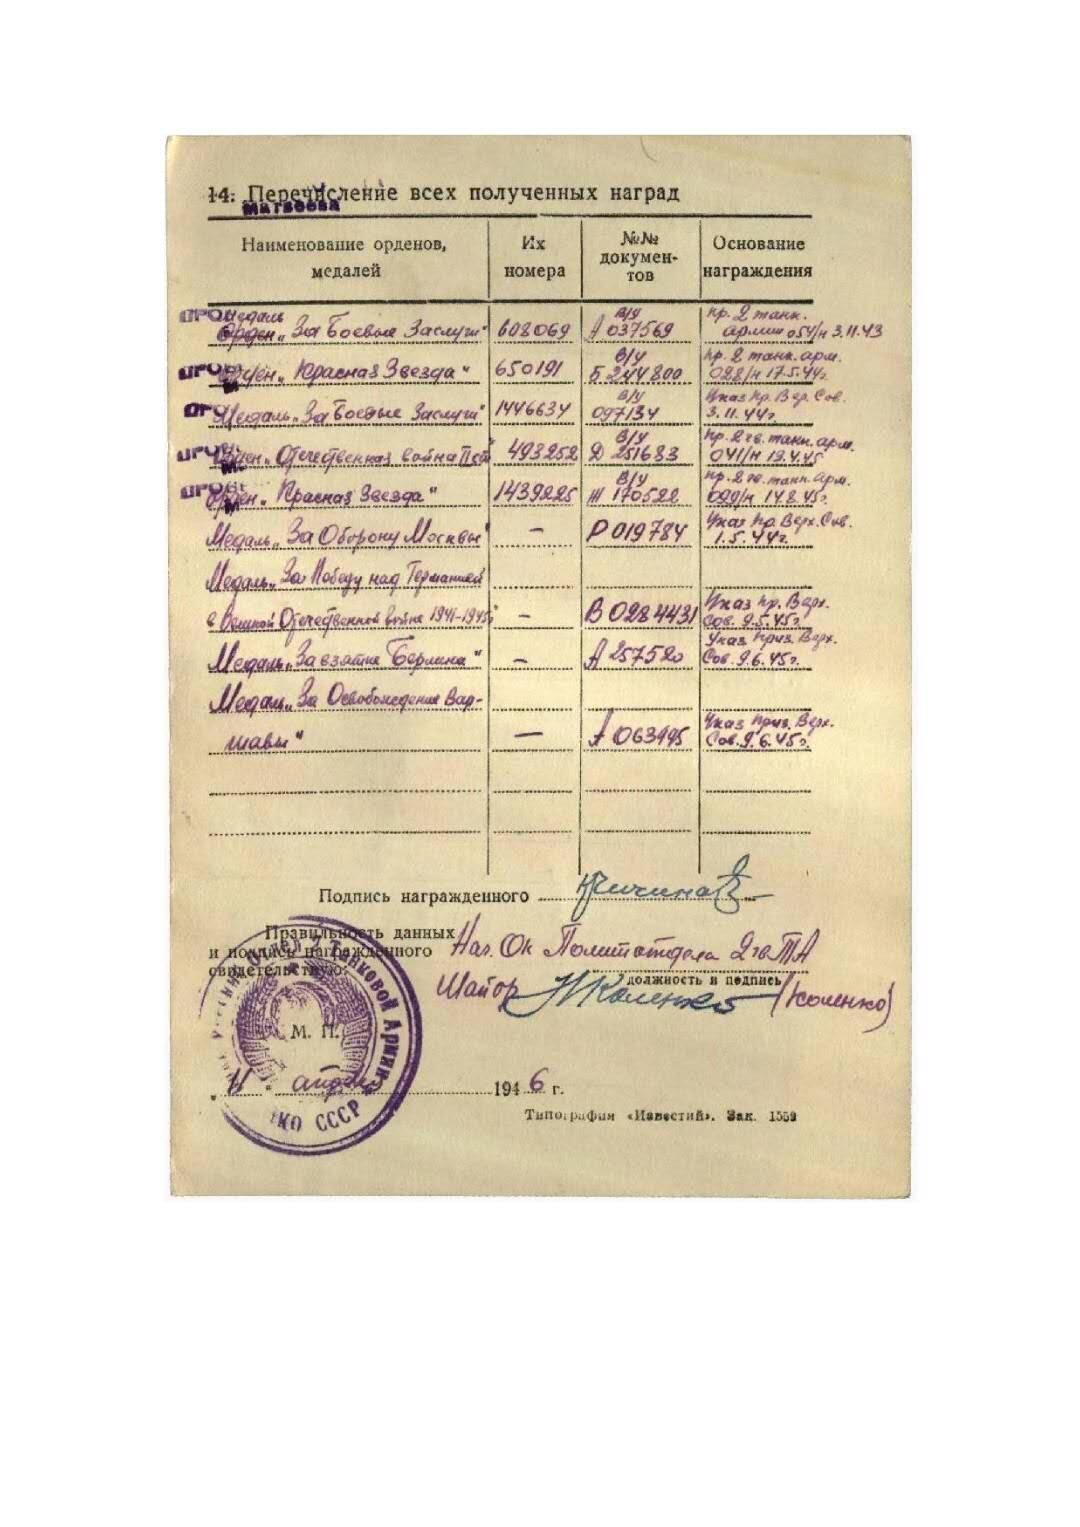 14. Перечисление всех полученных наград
Матвеева
Наименование орденов, медалей
Их номера
№№ документов
Основание награждения
Медаль
Орден „За Боевые Заслуги" 608069 В/У А 037569 Пр. 2 танк. армии 054/н 3.11.43
Орден „Красная Звезда" 650191 В/У Б 244800 Пр. 2 танк. арм. 028/н 17.5.44г.
Медаль „За Боевые Заслуги" 1446634 В/У 097134 Указ Пр. Вер. Сов. 3.11.44г.
Орден „Отечественная война II ст" 493252 В/У Д 251683 Пр. 2 гв. танк. арм. 041/н 19.4.45
Орден „Красная Звезда" 1439225 В/У Ж 170522 Пр. 2 гв. танк. арм. 029/н 14.8.45г.
Медаль „За Оборону Москвы" – Р 019784 Указ Пр. Верх. Сов. 1.5.44г.
Медаль „За Победу над Германией
в Великой Отечественной войне 1941-1945г" – В 0284431 Указ Пр. Верх. Сов. 9.5.45г.
Медаль „За взятие Берлина" – А 257520 Указ През. Верх. Сов. 9.6.45г.
Медаль „За Освобождение Вар-
шавы" – А 063495 Указ През. Верх. Сов. 9.6.45г.
Подпись награжденного
Правильность данных
и подпись награжденного
свидетельствую:
Нач. Ок Политотдела 2 гв ТА
должность и подпись
Майор Коленко (Коленко)
Отдел 2 Танковой Армии
НКО СССР
М. П.
"11" апреля 1946 г.
Типография «Известий». Зак. 1559